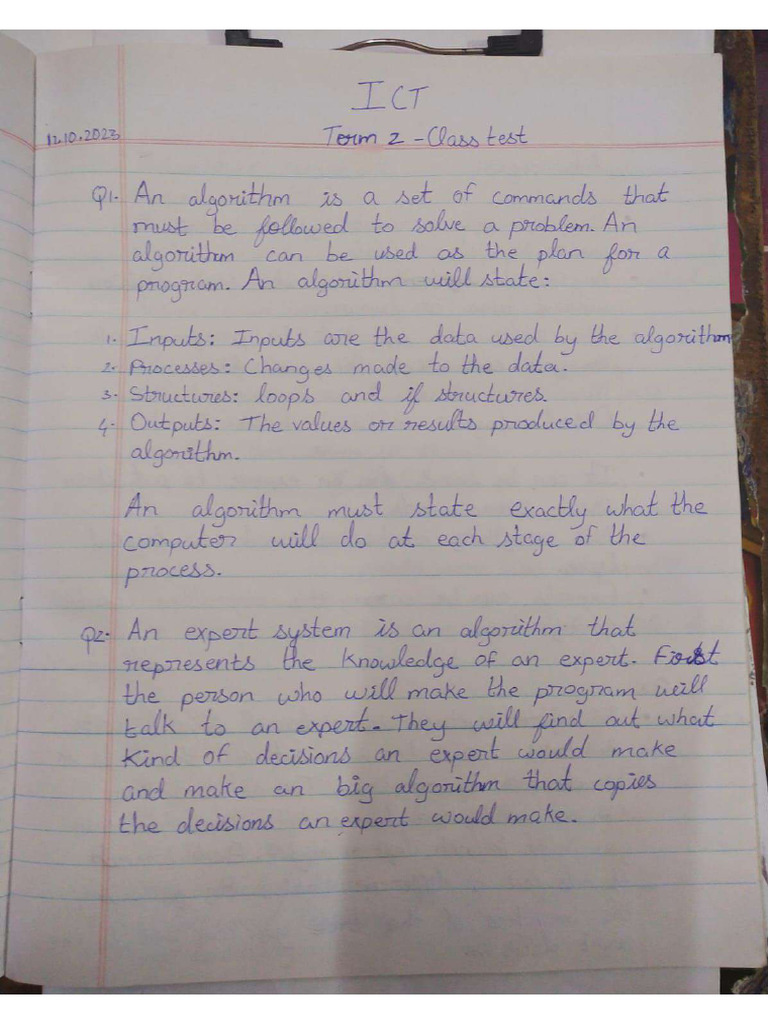 ICT
12.10.2023
Term 2 - Class test
Q1. An algorithm is a set of commands that
must be followed to solve a problem. An
algorithm can be used as the plan for a
program. An algorithm will state:
1. Inputs: Inputs are the data used by the algorithm
2. Processes: Changes made to the data.
3. Structures: loops and if structures.
4. Outputs: The values or results produced by the
algorithm.
An algorithm must state exactly what the
computer will do at each stage of the
process.
Q2. An expert system is an algorithm that
represents the knowledge of an expert. First
the person who will make the program will
talk to an expert. They will find out what
kind of decisions an expert would make
and make an big algorithm that copies
the decisions an expert would make.